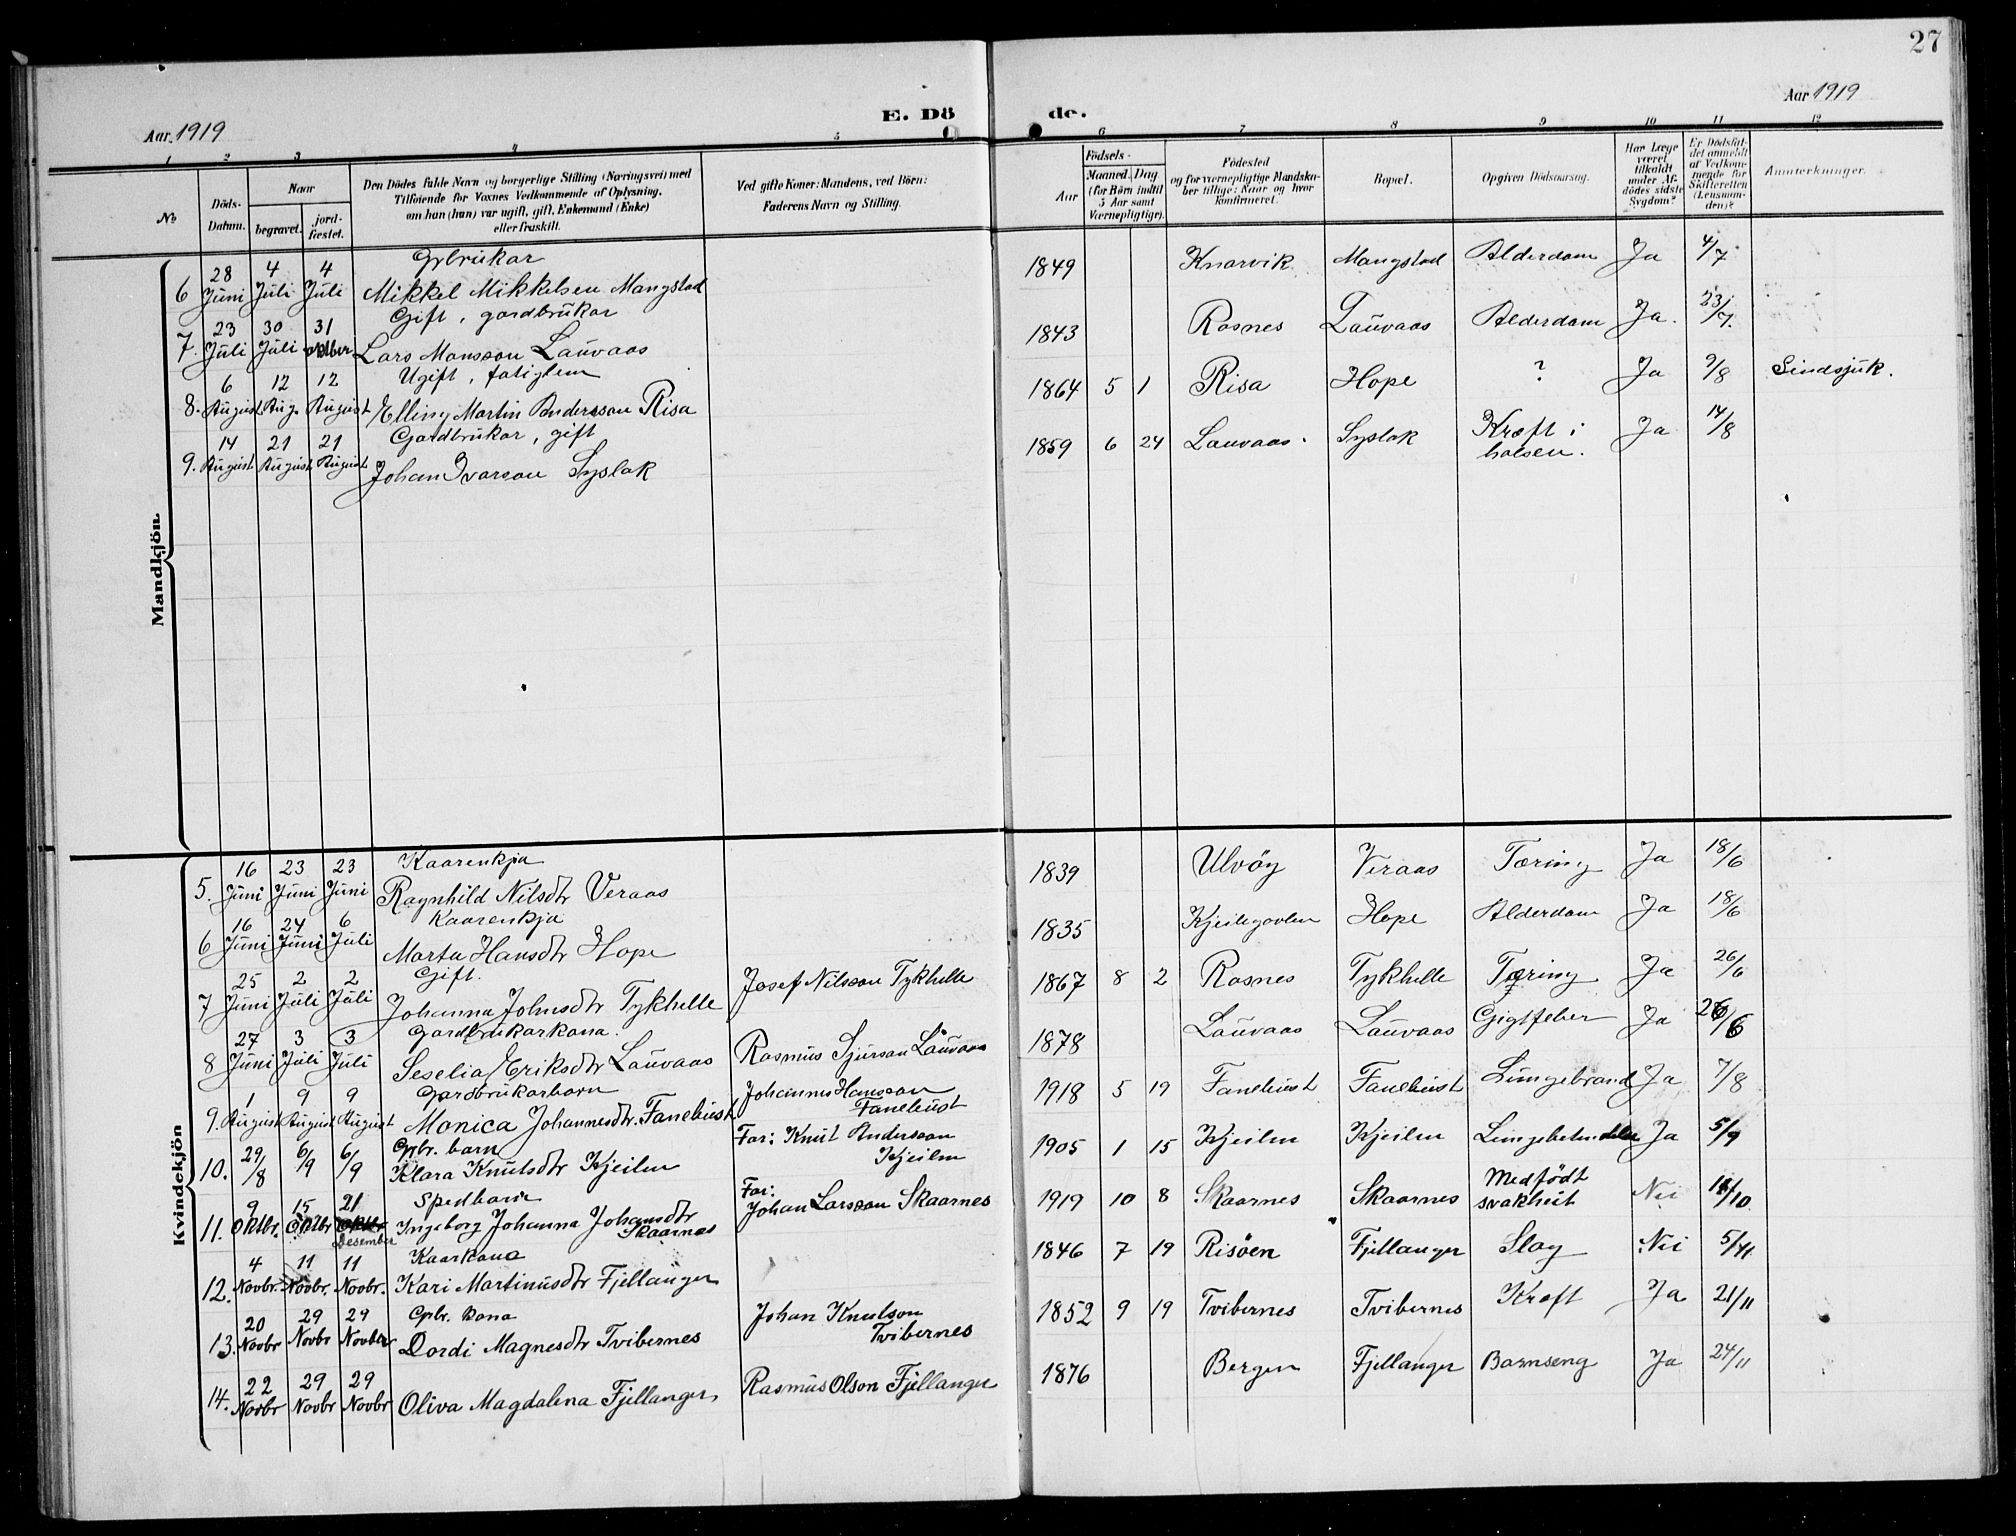 27
Aar 1919
E. Dö
de.
Aar 1919
1 2 3 4 5 6 7 8 9 10 11 12
No
Döds-Datum.
Naar
begravet.
jord-fæstet.
Den Dödes fulde Navn og borgerlige Stilling (Næringsvei) med
Tilföiende for Voxnes Vedkommende af Oplysning,
om han (hun) var ugift, gift, Enkemand (Enke)
eller fraskilt.
Ved gifte Koner: Mandens, ved Börn:
Faderens Navn og Stilling.
Födsels-
Aar
Maaned. Dag.
(for Börn indtil
5 Aar samt
Værnepligtige).
Födested
og for værnepligtige Mandska-
ber tillige: Naar og hvor
konfirmeret.
Bopæl.
Opgiven Dödsaarsag.
Har Læge
været
tilkaldt
under Af-
dödes sidste
Sygdom?
Er Dödsfal-
det anmeldt
af Vedkom-
mende for
Skifteretten
(Lensman-
den)?
Anmerkninger.
Mandkjön.
6 28 Juni 4 Juli 4 Juli Gbrukar
Mikkel Mikkelsen Mangstad 1849 Knarvik Mangstad Alderdom Ja 4/7
7. 23 Juli 30 Juli 31 oktber Gift, gardbrukar
Lars Monsson Lauvaas 1843 Rosnes Lauvaas Alderdom Ja. 23/7.
8. 6 August 12 Aug. 12 August Ugift, fatiglem
Elling Martin Andersson Risa 1864 5 1 Risa Hope ? Ja 9/8 Sindsjuk.
9. 14 August 21 August 21 August Gardbrukar, gift
Johan Ivarson Syslak 1859 6 24 Lauvaas Syslak Kræft i halsen. Ja 14/8
Kvindekjön
5. 16 Juni 23 Juni 23 Juni Kaarenkja
Ragnhild Nilsdtr Veraas 1839 Ulvöy Veraas Tæring Ja 18/6
6 16 Juni 24 Juni 6 Juli Kaarenkja
Marta Hansdtr Hope 1835 Kjeilegavlen Hope Alderdom Ja 18/6
7 25 Juni 2 Juli 2 Juli Gift.
Johanna Johnsdtr Tykhelle Josef Nilsson Tykhelle 1867 8 2 Rosnes Tykhelle Tæring Ja 26/6
8 27 Juni 3 Juli 3 Juli Gardbrukarkona.
Seselia Eriksdtr Lauvaas Rasmus Sjurson Lauvaas 1878 Lauvaas Lauvaas Gigtfeber Ja 26/6
9. 1 August 9 August 9 August Gardbrukarbarn
Monica Johannesdtr. Fanebust Johannes Hansson Fanebust 1918 5 19 Fanebust Fanebust Lungebrand Ja 7/8
10. 29/8 6/9 6/9 Gbr. barn
Klara Knutsdtr Kjeilen Far: Knut Andersson Kjeilen 1905 1 15 Kjeilen Kjeilen Ja 5/9
11. 9 Oktbr. 15 Oktbr 21 Oktbr Desember Spedbarn
Ingeborg Johanna Johansdtr Skaarnes Far: Johan Larsson Skaarnes 1919 10 8 Skaarnes Skaarnes Medfödt svakheit Nei /10
12. 4 Novbr. 11 Novbr. 11 Novbr. Kaarkona
Kari Martinusdtr Fjellanger 1846 7 19 Risöen Fjellanger Slag Nei 5/11.
13. 20 Novbr 29 Novbr 29 Novber Gbr. kona
Dordi Magnesdtr Tvibernes Johan Knutson Tvibernes 1852 9 19 Tvibernes Tvibernes Kræft Ja 21/11
14. 22 Novbr 29 Novbr 29 Novbr Oliva Magdalena Fjellanger Rasmus Olson Fjellanger 1876 Bergen Fjellanger Barnseng Ja 24/11